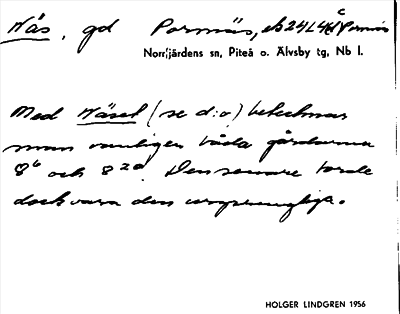 Näs, gd Porsnäs, eb 24L4d c Porsnäs
Norrfjärdens sn, Piteå o. Älvsby tg, Nb l.
Med Näset (se d:o) betecknas
man vanligen båda gårdarna
8b och 8 2a. Den senare torde
dock vara den ursprungliga.
HOLGER LINDGREN 1956